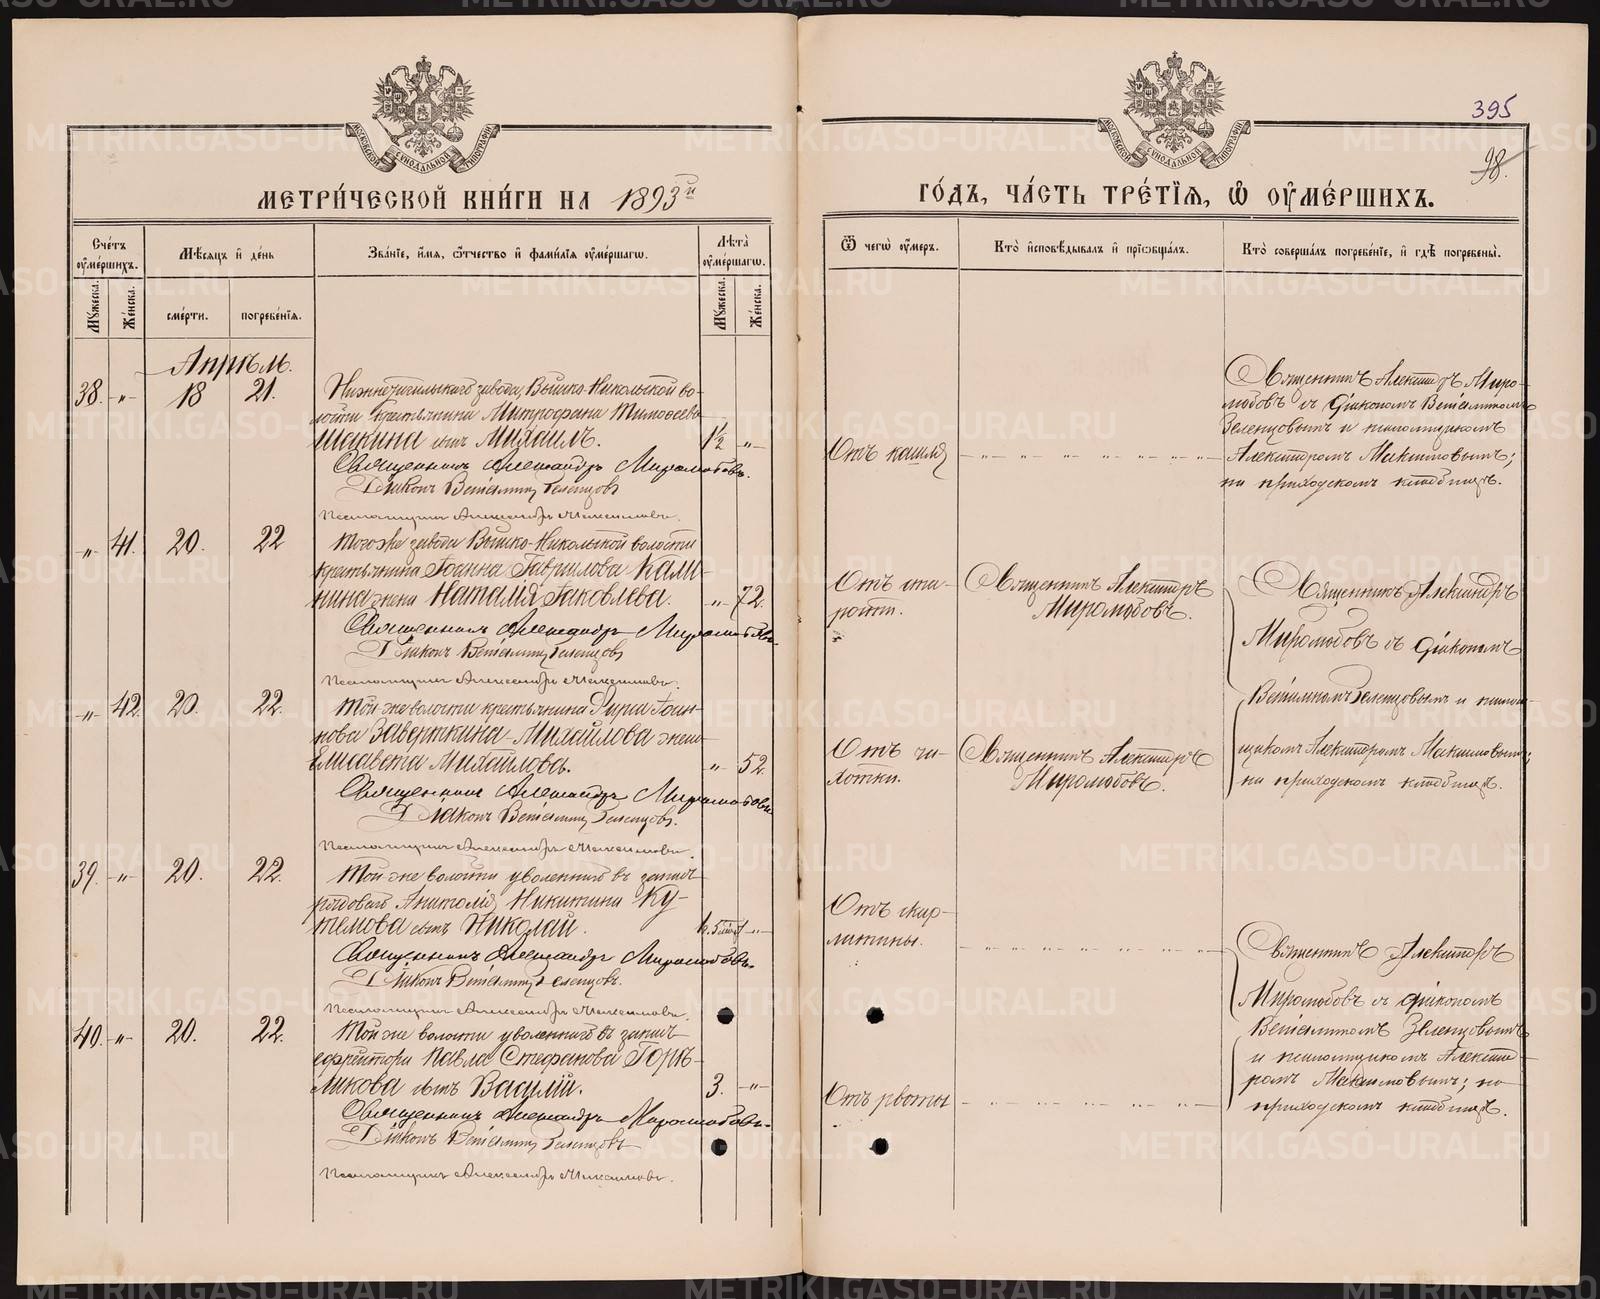 МЕТРИ́ЧЕСКОЙ КНИ́ГИ НА 1893й
ГО́ДЪ, ЧА́СТЬ ТРЕ́ТЇѦ, Ѽ ОУ҆МЕ́РШИХЪ.
395
98.
Сче́тъ оу҆ме́ршихъ.
Мѣ́сѧцъ и҆ де́нь
Зва́нїе, и҆́мѧ, ѻ҆́тчество и҆ фами́лїѧ оу҆ме́ршагѡ.
Лѣ́та оу҆ме́ршагѡ.
Мꙋ́жеска.
Же́нска.
сме́рти.
погребе́нїѧ.
Мꙋ́жеска.
Же́нска.
Ѿ чегѡ̀ оу҆́меръ.
Кто̀ и҆сповѣ́дывалъ и҆ прїѡбща́лъ.
Кто̀ соверша́лъ погребе́нїе, и҆ гдѣ̀ погребены̀.
Апрѣль.
38. -"- 18 21.
Нижнетагильскаго завода, Выйско-Никольской во-
лости крестьянина Митрофана Тимоѳеева
Шекина сынъ Михаилъ. 1½ -"-
Священникъ Александръ Миролюбовъ.
Діаконъ Веніаминъ Зеленцовъ
Псаломщикъ Александръ Максимовъ.
Отъ кашля
Священникъ Александръ Миро-
любовъ съ діакономъ Веніаминомъ
Зеленцовымъ и псаломщикомъ
Александромъ Максимовымъ;
на приходскомъ кладбищѣ.
-"- 41. 20. 22
Того же завода Выйско-Никольской волости
крестьянина Іоанна Гаврилова Кали-
нина жена Наталія Іаковлева. -"- 72.
Священникъ Александръ Миролюбовъ.
Діаконъ Веніаминъ Зеленцовъ
Псаломщикъ Александръ Максимовъ.
Отъ ста-
рости.
Священникъ Александръ
Миролюбовъ.
Священникъ Александръ
Миролюбовъ съ діакономъ
Веніаминомъ Зеленцовымъ и псалом-
щикомъ Александромъ Максимовымъ;
на приходскомъ кладбищѣ.
-"- 42 20. 22.
Той же волости крестьянина Іоан-
нова Заверткина-Михайлова жена
Елисавета Михайлова. -"- 52.
Священникъ Александръ Миролюбовъ
Діаконъ Веніаминъ Зеленцовъ.
Псаломщикъ Александръ Максимовъ.
Отъ ча-
хотки.
Священникъ Александръ
Миролюбовъ.
39. -"- 20. 22.
Той же волости уволеннаго въ запасъ
рядоваго Анатолія Никитина Ку-
темова сынъ Николай. -"-
Священникъ Александръ Миролюбовъ.
Діаконъ Веніаминъ Зеленцовъ.
Псаломщикъ Александръ Максимовъ.
Отъ скар-
латины.
Священникъ Александръ
Миролюбовъ съ діакономъ
Веніаминомъ Зеленцовымъ
и псаломщикомъ Алексан-
ромъ Максимовымъ; на
приходскомъ кладбищѣ.
40. -"- 20. 22.
Той же волости уволеннаго въ запасъ
ефрейтора Павла Стефанова Горѣ-
ликова сынъ Василій. 3. -"-
Священникъ Александръ Миролюбовъ.
Діаконъ Веніаминъ Зеленцовъ
Псаломщикъ Александръ Максимовъ.
Отъ рвоты
МОСКОВСКОЙ СѴНОДАЛЬНОЙ ТИПОГРАФІИ
МОСКОВСКОЙ СѴНОДАЛЬНОЙ ТИПОГРАФІИ
METRIKI.GASO-URAL.RU